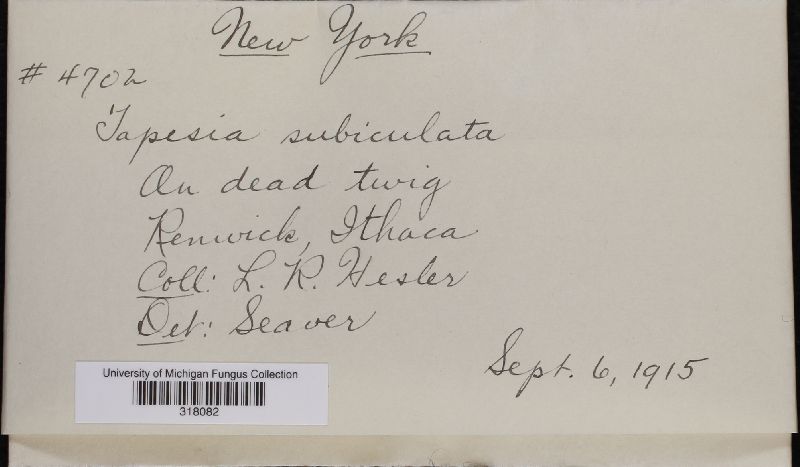 New York
# 4702
Tapesia subiculata
On dead twig
Renwick, Ithaca
Coll: L. R. Hesler
Det: Seaver
Sept. 6, 1915
University of Michigan Fungus Collection
318082